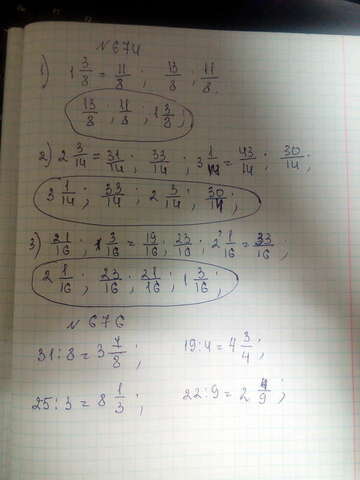 № 674
1) 1 3/8 = 11/8 ; 13/8 ; 11/8.
13/8 ; 11/8 ; 1 3/8 ;
2) 2 3/14 = 31/14 ; 33/14 ; 3 1/14 = 43/14 ; 30/14 ;
3 1/14 ; 33/14 ; 2 3/14 ; 30/14 ;
3) 21/16 ; 1 3/16 = 19/16 ; 23/16 ; 2 1/16 = 33/16 ;
2 1/16 ; 23/16 ; 21/16 ; 1 3/16 ;
№ 676
31:8 = 3 7/8 ; 19:4 = 4 3/4 ;
25:3 = 8 1/3 ; 22:9 = 2 4/9 ;